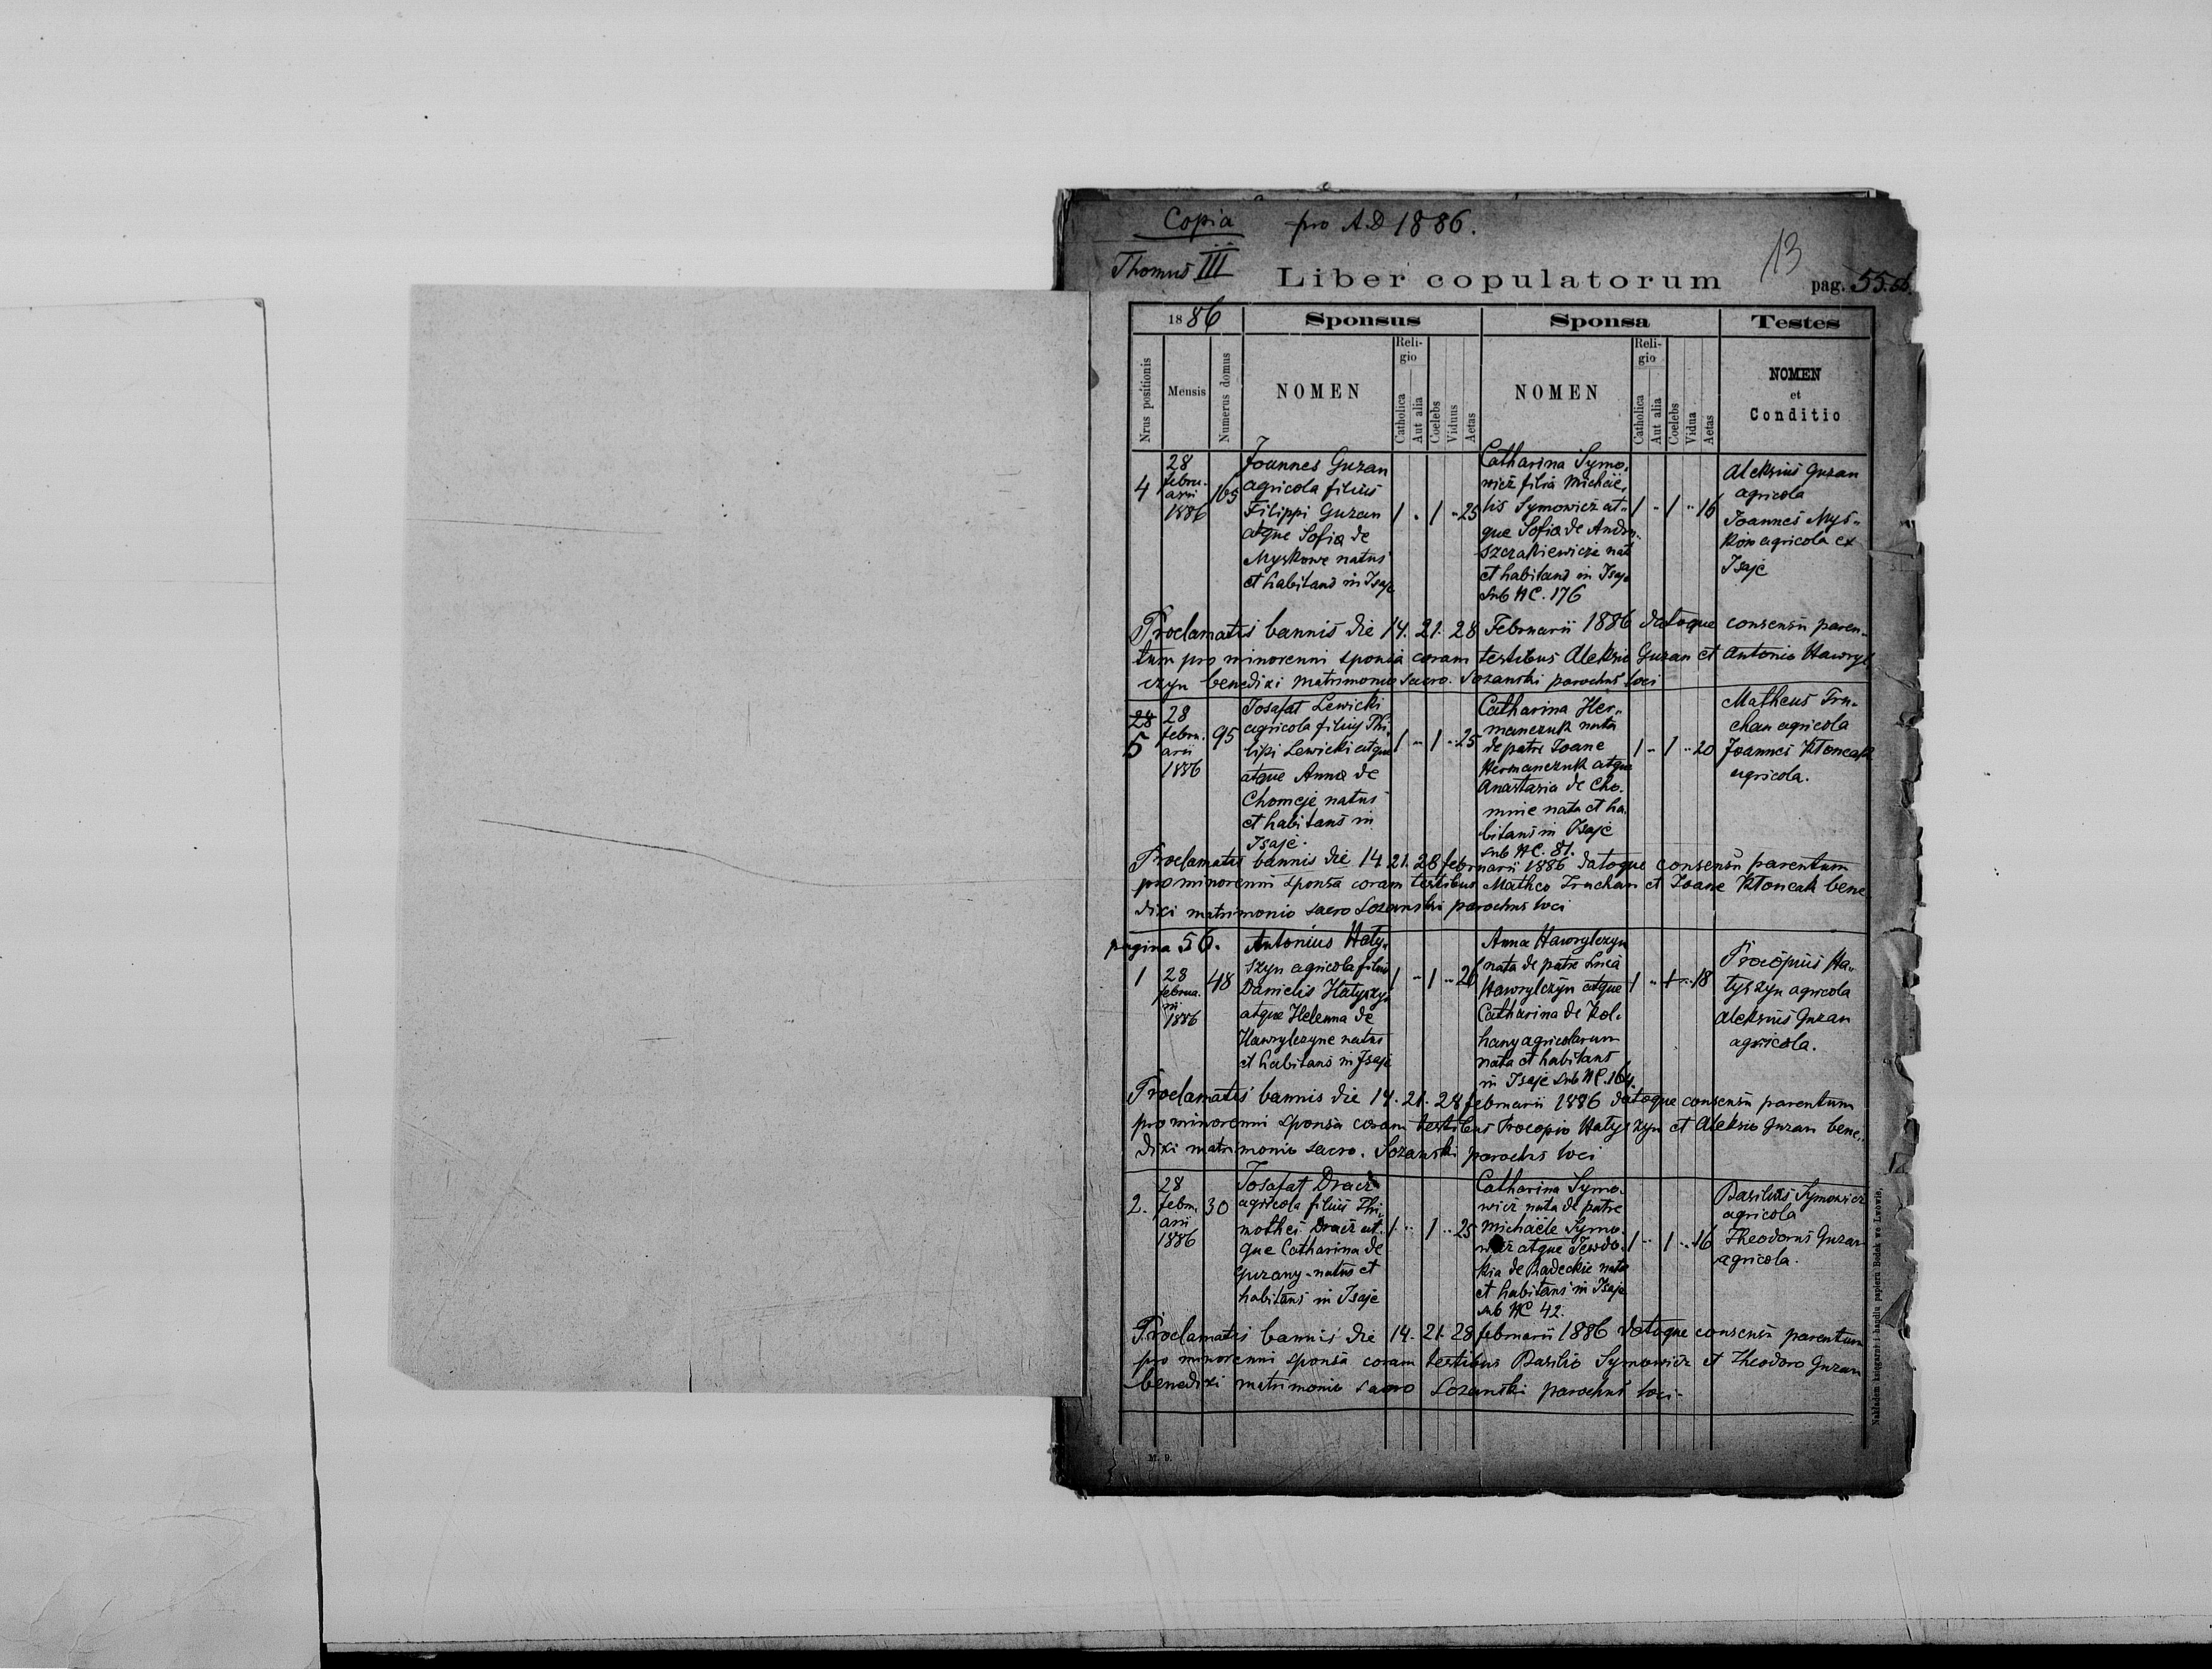 Copia pro A.D 1886.
Thomus III
Liber copulatorum
13
pag. 55.
1886
Sponsus
Sponsa
Testes
Nrus positionis
Mensis
Numerus domus
NOMEN
Reli-
gio
Catholica
Aut alia
Coelebs
Viduus
Aetas
NOMEN
Reli-
gio
Catholica
Aut alia
Coelebs
Vidua
Aetas
NOMEN
et
Conditio
4
28
febru-
arii
1886
165
Joannes Guzan
agricola filius
Filippi Guzan
atque Sofia de
Myskowe natus
et habitans in Isaje
1 " 1 " 25
Catharina Symo-
wicz filia Michae-
lis Symowicz at-
que Sofia de Andru-
szczakiewicze nat
et habitans in Isaje
sub NC. 176
1 " 1 " 16
Aleksius Guzan
agricola
Joannes Mys-
kow agricola ex
Isaje
Proclamatis bannis die 14. 21. 28 Februarii 1886 datoque consensu paren-
tum pro minorenni sponsa coram testibus Aleksio Guzan et Antonio Hawryl
czyn benedixi matrimonio sacro. Sozanski parochus loci
28
5
28
febru-
arii
1886
95
Josafat Lewicki
agricola filius Phi-
lipi Lewicki atque
atque Anna de
Chomeje natus
et habitans in
Isaje.
1 " 1 " 25
Catharina Her-
manczuk nata
de patre Joane
Hermanczuk atque
Anastasia de Cho-
minie nata et ha-
bitans in Isaje
sub NC. 81.
1 " 1 " 20
Matheus Tru-
chan agricola
Joannes Kłoncak
agricola.
Proclamatis bannis die 14 21. 28 februarii 1886 datoque consensu parentum
pro minorenni sponsa coram testibus Matheo Truchan et Joane Kłoncak bene
dixi matrimonio sacro Sozanski parochus loci
pagina 56.
1
28
februa-
rii
1886
48
Antonius Haty-
szyn agricola filius
Danielis Hatyszyn
atque Helenna de
Hawrylczyne natus
et habitans in Isaje
1 " 1 " 26
Anna Hawrylczyn
nata de patre Luca
Hawrylczyn atque
Catharina de Kol-
hany agricolarum
nata et habitans
in Isaje sub NC. 164.
1 " 1 " 18
Procopius Ha-
tyszyn agricola
Aleksius Guzan
agricola.
Proclamatis bannis die 14. 21. 28 februarii 1886 datoque consensu parentum
pro minorenni sponsa coram testibus Procopio Hatyszyn et Aleksio Guzan bene-
dixi matrimonio sacro. Sozanski parochus loci
2.
28
febru-
arii
1886
30
Josafat Dracz
agricola filius Thi-
mothei Dracz at-
que Catharina de
Guzany natus et
habitans in Isaje
1 " 1 " 25
Catharina Symo-
wicz nata de patre
Michaele Symo-
wicz atque Jewdo-
kia de Radeckie nata
et habitans in Isaje
sub NC 42.
1 " 1 " 16
Basilius Symowicz
agricola
Theodorus Guzan
agricola.
Proclamatis bannis die 14. 21. 28 februarii 1886 datoque consensu parentum
pro minorenni sponsa coram testibus Basilio Symowicz et Theodoro Guzan
benedixi matrimonio sacro Sozanski parochus loci
Nakładem księgarni i handlu papieru Bodek we Lwowie.
M. 9.